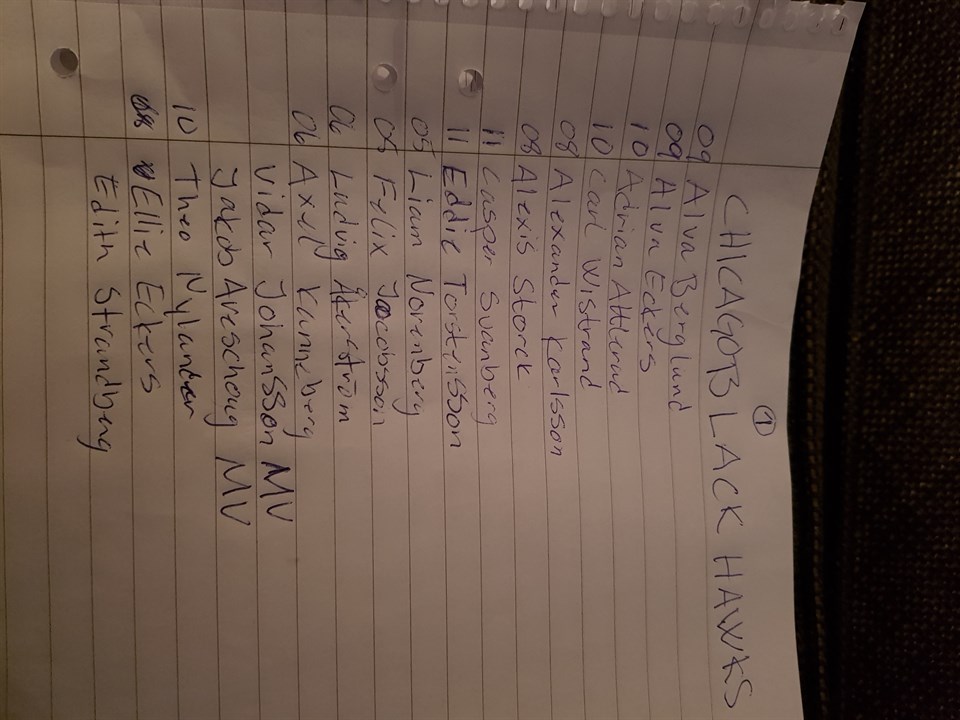 ①
CHICAGO BLACK HAWKS
09 Alva Berglund
09 Alva Eckers
10 Adrian Attlerud
10 Carl Wistrand
08 Alexander Karlsson
08 Alexis Storck
11 Casper Svanberg
11 Eddie Torstensson
05 Liam Norenberg
05 Felix Jacobsson
06 Ludvig Åkerström
06 Axel Kanneberg
Vidar Johansson MV
Jakob Areschoug MV
10 Theo Nylander
Ellie Eckers
Edith Strandberg